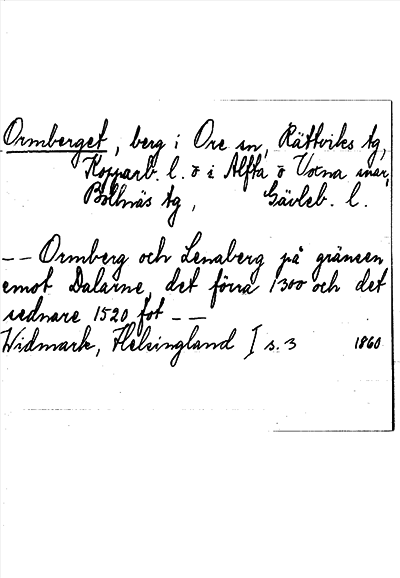 Ormberget, berg i Ore sn, Rättviks tg,
Kopparb. l. o i Alfta o Voxna snar,
Bollnäs tg, Gävleb. l.
-- Ormberg och Lenaberg på gränsen
emot Dalarne, det förra 1300 och det
sednare 1520 fot --
Widmark, Helsingland I s. 3 1860